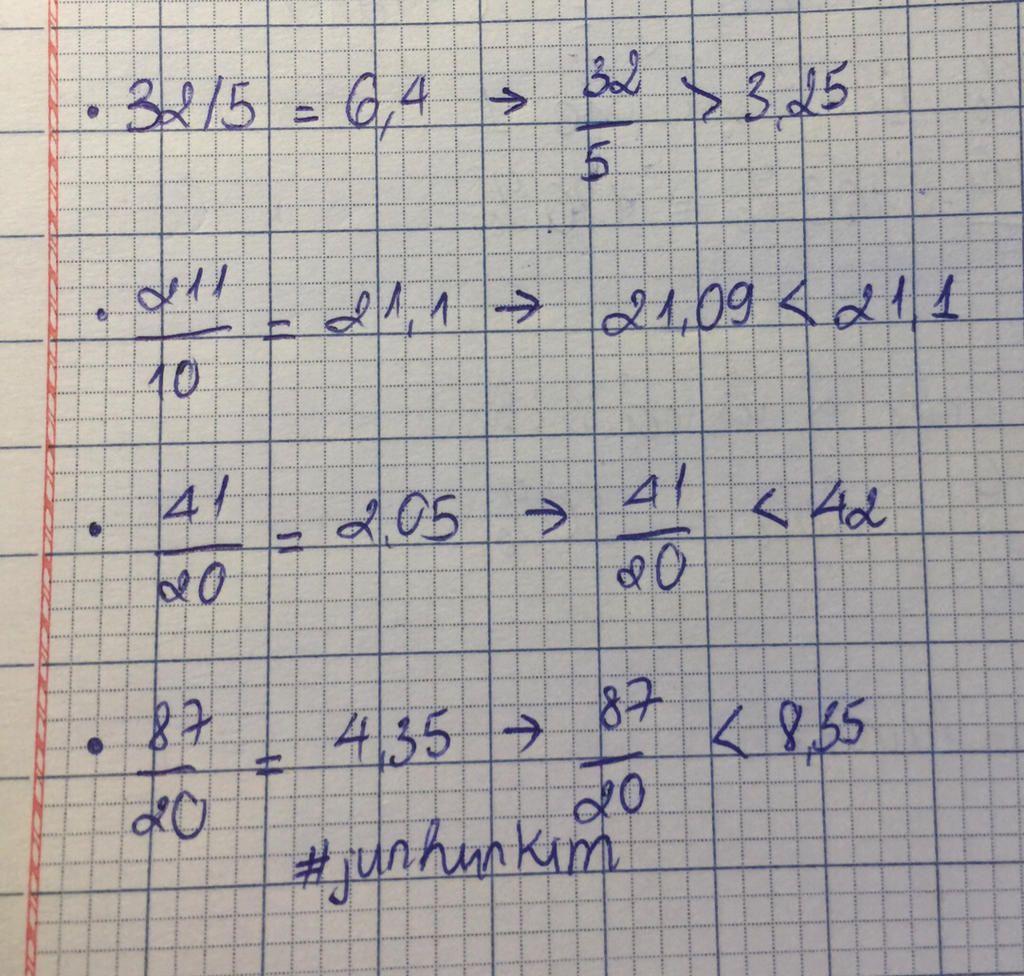 • 32/5 = 6,4 → 32/5 > 3,25
• 211/10 = 21,1 → 21,09 < 21,1
• 41/20 = 2,05 → 41/20 < 42
• 87/20 = 4,35 → 87/20 < 8,35
#junhunkim